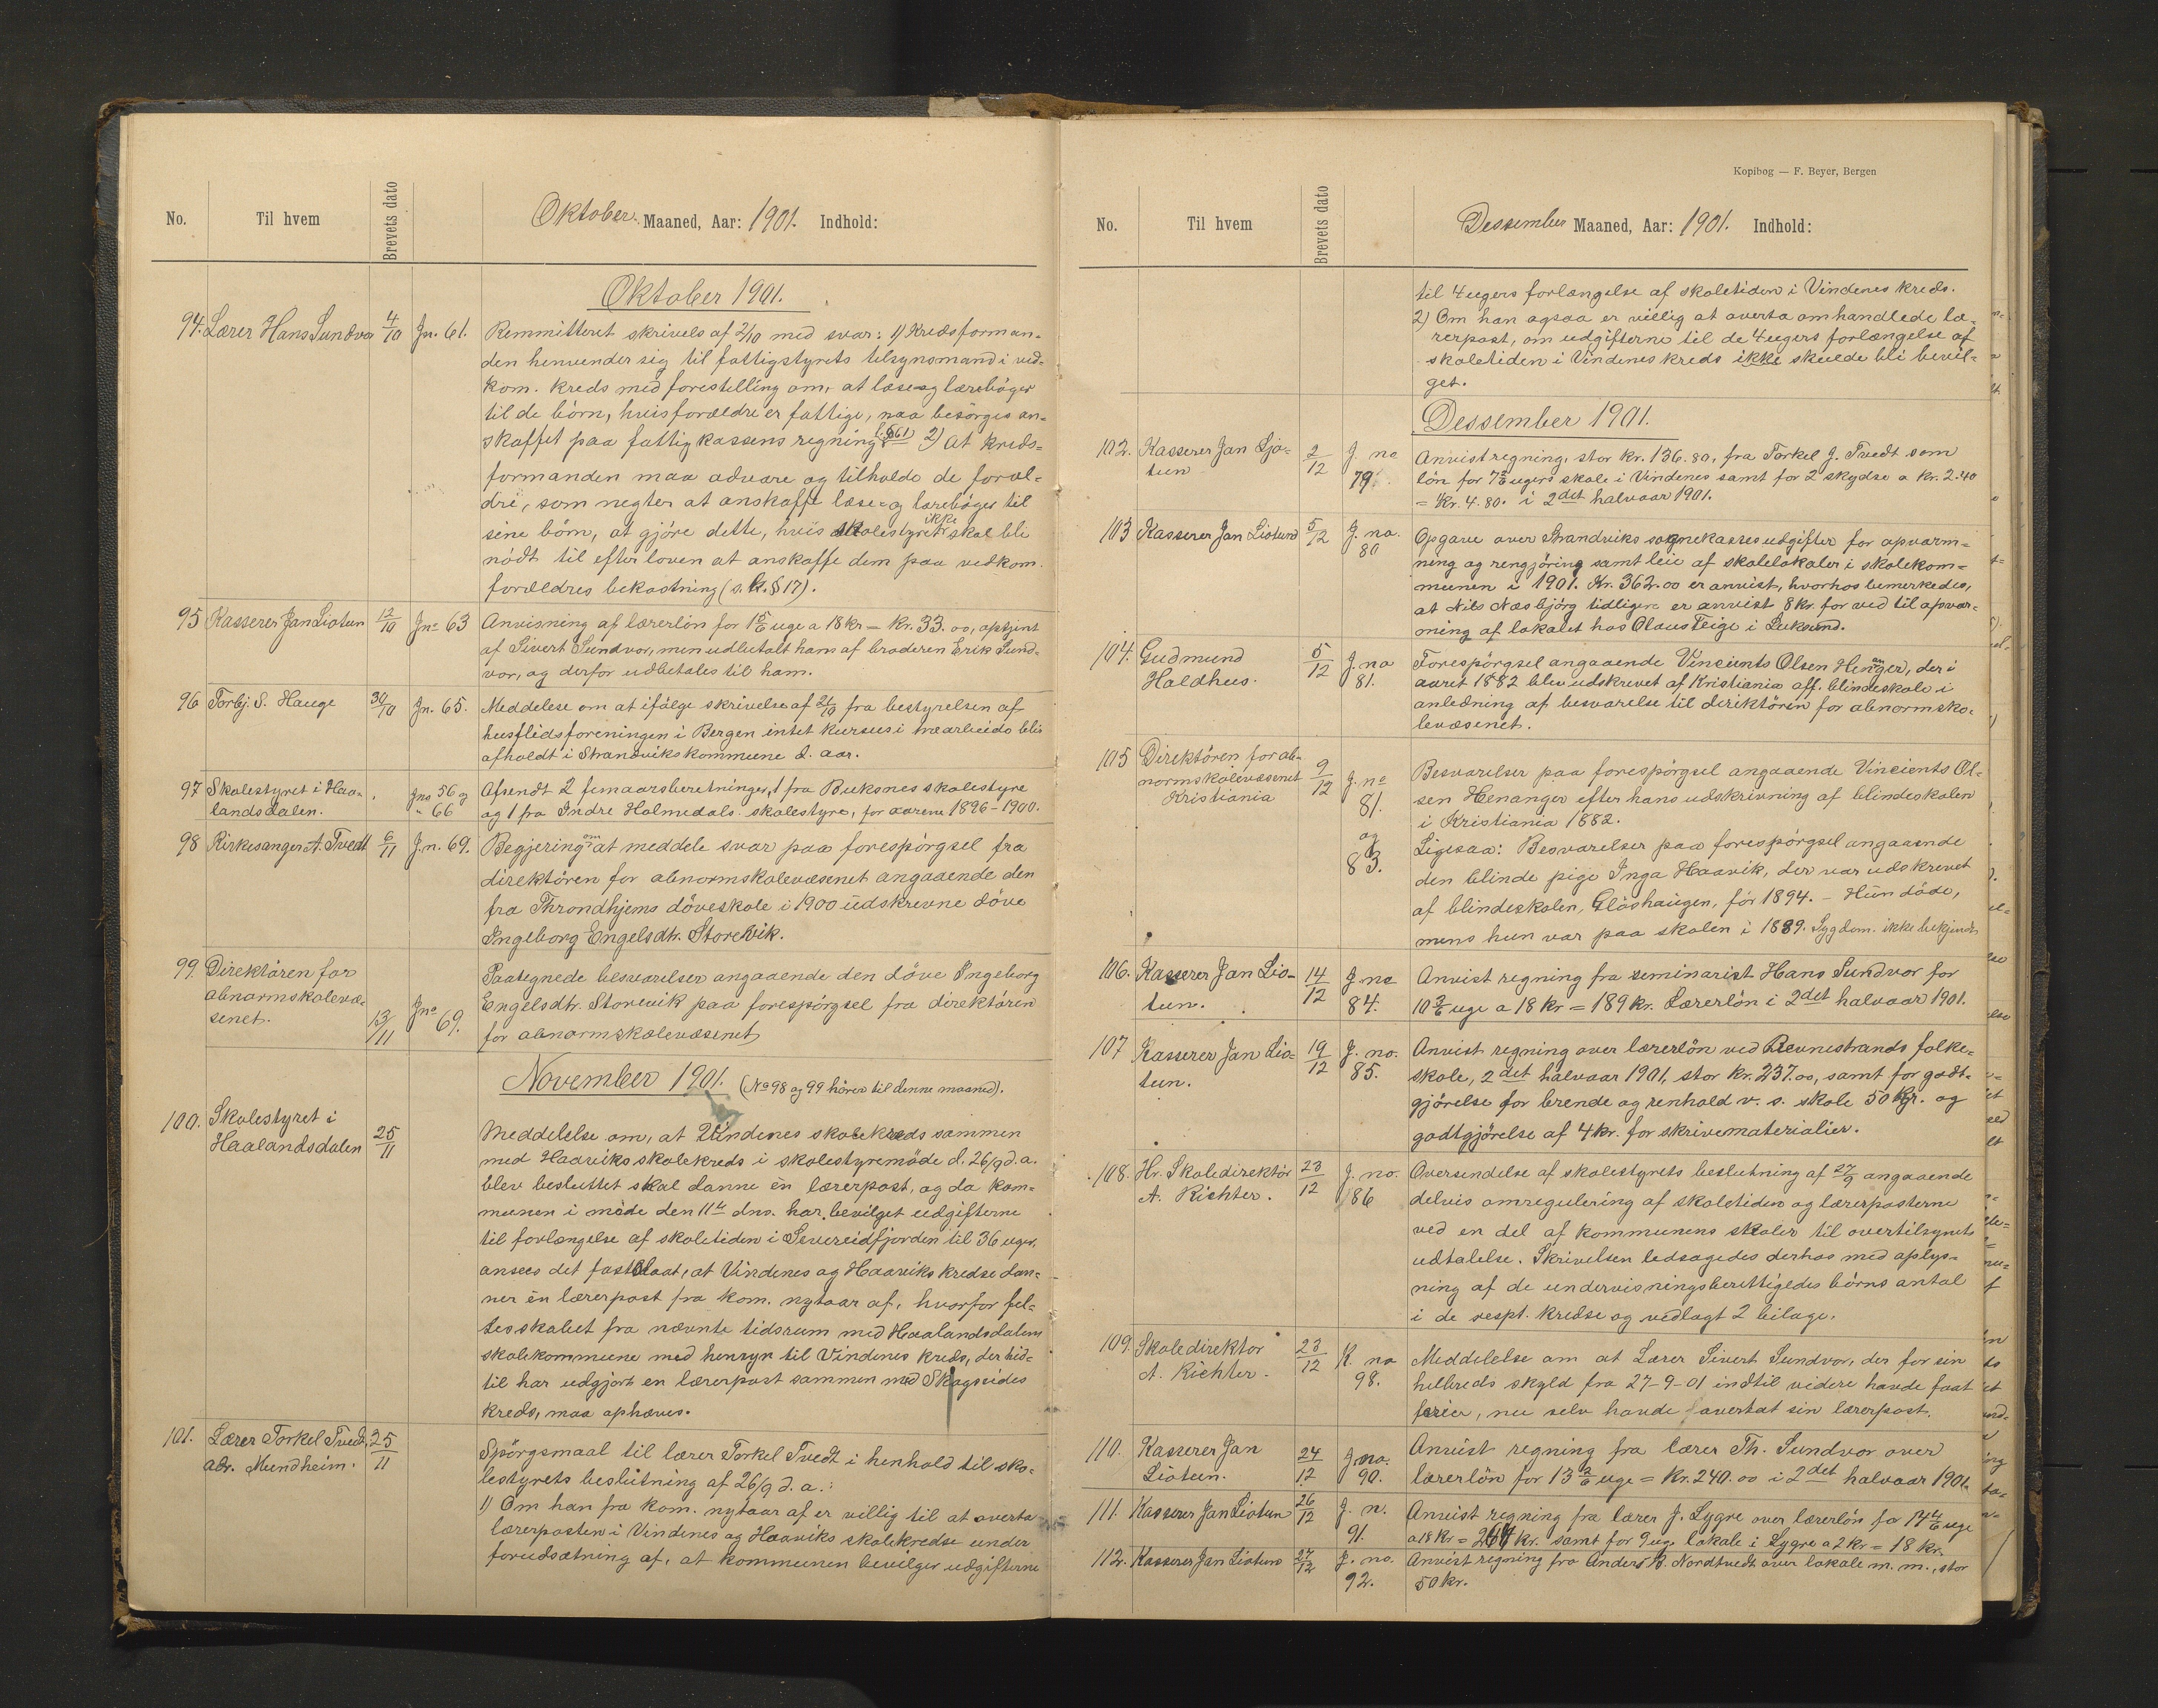 No. Til hvem Brevets dato Oktober. Maaned, Aar: 1901. Indhold:
Oktober 1901.
94. Lærer Hans Sundvor 4/10 Jn. 61. Remmitteret skrivels af 2/10 med svar: 1) Kredsforman-
den henvender sig til fattigstyrets tilsynsmand i ved-
kom. kreds med forestilling om, at læse og lærebøger
til de børn, hvis forældre er fattige, maa besørges an-
skaffet paa fattigkassens regning (§61) 2) At kreds-
formanden maa advare og tilholde de foræl-
dre, som negter at anskaffe læse- og lærebøger til
sine børn, at gjøre dette, hvis skolestyret ikke skal bli
nødt til efter loven at anskaffe dem paa vedkom.
forældres bekostning (s. l. § 17).
95 Kasserer Jan Liotun 12/10 Jno 63 Anvisning af lærerløn for 1 5/6 uge a 18 kr = Kr. 33.00, optjent
af Sivert Sundvor, men udbetalt ham af broderen Erik Sund-
vor, og derfor udbetales til ham.
96 Torbj. S. Hauge 30/10 Jn. 65. Meddelese om at ifølge skrivelse af 21/10 fra bestyrelsen af
husflidsforeningen i Bergen intet kursus i træarbeide blir
afholdt i Strandviks kommune d. aar.
97 Skolestyret i Haa-
landsdalen. Jno 56 og
" 66 Afsendt 2 femaarsberetninger, 1 fra Buksnes skolestyre
og 1 fra Indre Holmedals skolestyre, for aarene 1896-1900.
98 Kirkesanger A. Tvedt 6/11 J.n. 69. Begjering om at meddele svar paa forespørgsel fra
direktøren for abnormskolevæsenet angaaende den
fra Throndhjems døveskole i 1900 udskrevne døve
Ingeborg Engelsdtr. Storevik.
99. Direktøren for
abnormskolevæ-
senet. 13/11 Jno 69. Paategnede besvarelser angaaende den døve Ingeborg
Engelsdtr. Storevik paa forespørgsel fra direktøren
for abnormskolevæsenet
November 1901. (No 98 og 99 hører til denne maaned).
100. Skolestyret i
Haalandsdalen 25/11 Meddelelse om, at Vindenes skolekreds sammen
med Haaviks skolekreds i skolestyremøde d. 26/9 d. a.
blev besluttet skal danne èn lærerpost, og da kom-
munen i møde den 11te dns. har bevilget udgifterne
til forlængelse af skoletiden i Sævereidfjorden til 36 uger,
ansees det fastslaat, at Vindenes og Haaviks kredse dan-
ner èn lærerpost fra kom. nytaar af, hvorfor fel-
lesskabet fra nævnte tidsrum med Haalandsdalens
skolekommune med hensyn til Vindenes kreds, der hid-
til har udgjort en lærerpost sammen med Skogseides
kreds, maa ophæves.
101. Lærer Torkel Tvedt,
adr. Mundheim. 25/11 Spørgsmaal til lærer Torkel Tvedt i henhold til sko-
lestyrets beslutning af 26/9 d. a.:
1) Om han fra kom. nytaar af er villig til at overta
lærerposten i Vindenes og Haaviks skolekredse under
forudsætning af, at kommunen bevilger udgifterne
Kopibog — F. Beyer, Bergen
No. Til hvem Brevets dato Dessember Maaned, Aar: 1901. Indhold:
til 4 ugers forlængelse af skoletiden i Vindenes kreds.
2) Om han ogsaa er villig at overta omhandlede læ-
rerpost, om udgifterne til de 4 ugers forlængelse af
skoletiden i Vindenes kreds ikke skulde bli bevil-
get.
Dessember 1901.
102. Kasserer Jan Ljo-
tun 2/12 J. no 79. Anvist regning, stor kr. 136.80, fra Torkel J. Tvedt som
løn for 7 2/6 ugers skole i Vindenes samt for 2 skydse a kr. 2.40
= Kr. 4.80. i 2det halvaar 1901.
103 Kasserer Jan Liotund 5/12 J. no. 80 Opgave over Strandviks sognekasses udgifter for opvarm-
ning og rengjøring samt leie af skolelokaler i skolekom-
munen i 1901. Kr. 362.00 er anvist, hvorhos bemerkedes,
at Nils Næsbjørg tidligere er anvist 8 kr. for ved til opvar-
ming af lokalet hos Olaus Teige i Luksund.
104. Gudmund
Haldhus. 5/12 J. no 81. Forespørgsel angaaende Vincients Olsen Henanger, der i
aaret 1882 blev udskrevet af Kristiania off. blindeskole i
anledning af besvarelse til direktøren for abnormsko-
levæsenet.
105 Direktøren for ab-
normskolevæsenet
Kristiania 9/12 J. no 81. og 83. Besvarelser paa forespørgsel angaaende Vincients Ol-
sen Henanger efter hans udskrivning af blindeskolen
i Kristiania 1882.
Ligesaa: Besvarelser paa forespørgsel angaaende
den blinde pige Inga Haavik, der var udskrevet
af blindeskolen, Gløshaugen, før 1894. - Hun døde,
mens hun var paa skolen i 1889. Sygdom. ikke bekjendt
106. Kasserer Jan Lio-
tun. 14/12 J. no 84. Anvist regning fra seminarist Hans Sundvor for
10 3/6 uge a 18 kr = 189 kr. Lærerløn i 2det halvaar 1901.
107 Kasserer Jan Lio-
tun. 19/12 J. no. 85. Anvist regning over lærerløn ved Revnestrands folke-
skole, 2det halvaar 1901, stor kr. 237.00, samt for godt-
gjørelse for brende og renhold v. s. skole 50 Kr. og
godtgjørelse af 4 kr. for skrivematerialier.
108. Hr. Skoledirektør
A. Richter. 23/12 J. no. 86 Oversendelse af skolestyrets beslutning af 27/9 angaaende
delvis omregulering af skoletiden og lærerposterne
ved en del af kommunens skoler til overtilsynets
udtalelse. Skrivelsen ledsagedes derhos med oplys-
ning af de undervisningsberettigedes børns antal
i de respt. kredse og vedlagt 2 bilage.
109. Skoledirektør
A. Richter. 23/12 K. no 98. Meddelelse om at Lærer Sivert Sundvor, der for sin
helbreds skyld fra 27-9-01 indtil videre havde faat
ferier, nu selv havde overtat sin lærerpost.
110. Kasserer Jan
Liotun. 24/12 J. no. 90. Anvist regning fra lærer Th. Sundvor over
lærerløn for 13 2/6 uge = Kr. 240.00 i 2det halvaar 1901.
111. Kasserer Jan Liotun 26/12 J. n. 91. Anvist regning fra lærer J. Lygre over lærerløn for 14 4/6 uge
a 18 Kr = 264 kr. samt for 9 ug. lokale i Lygre a 2 kr = 18 kr.
112. Kasserer Jan Liotun 27/12 J. no. 92. Anvist regning fra Anders B. Nordtvedt over lokale m. m., stor
50 kr.